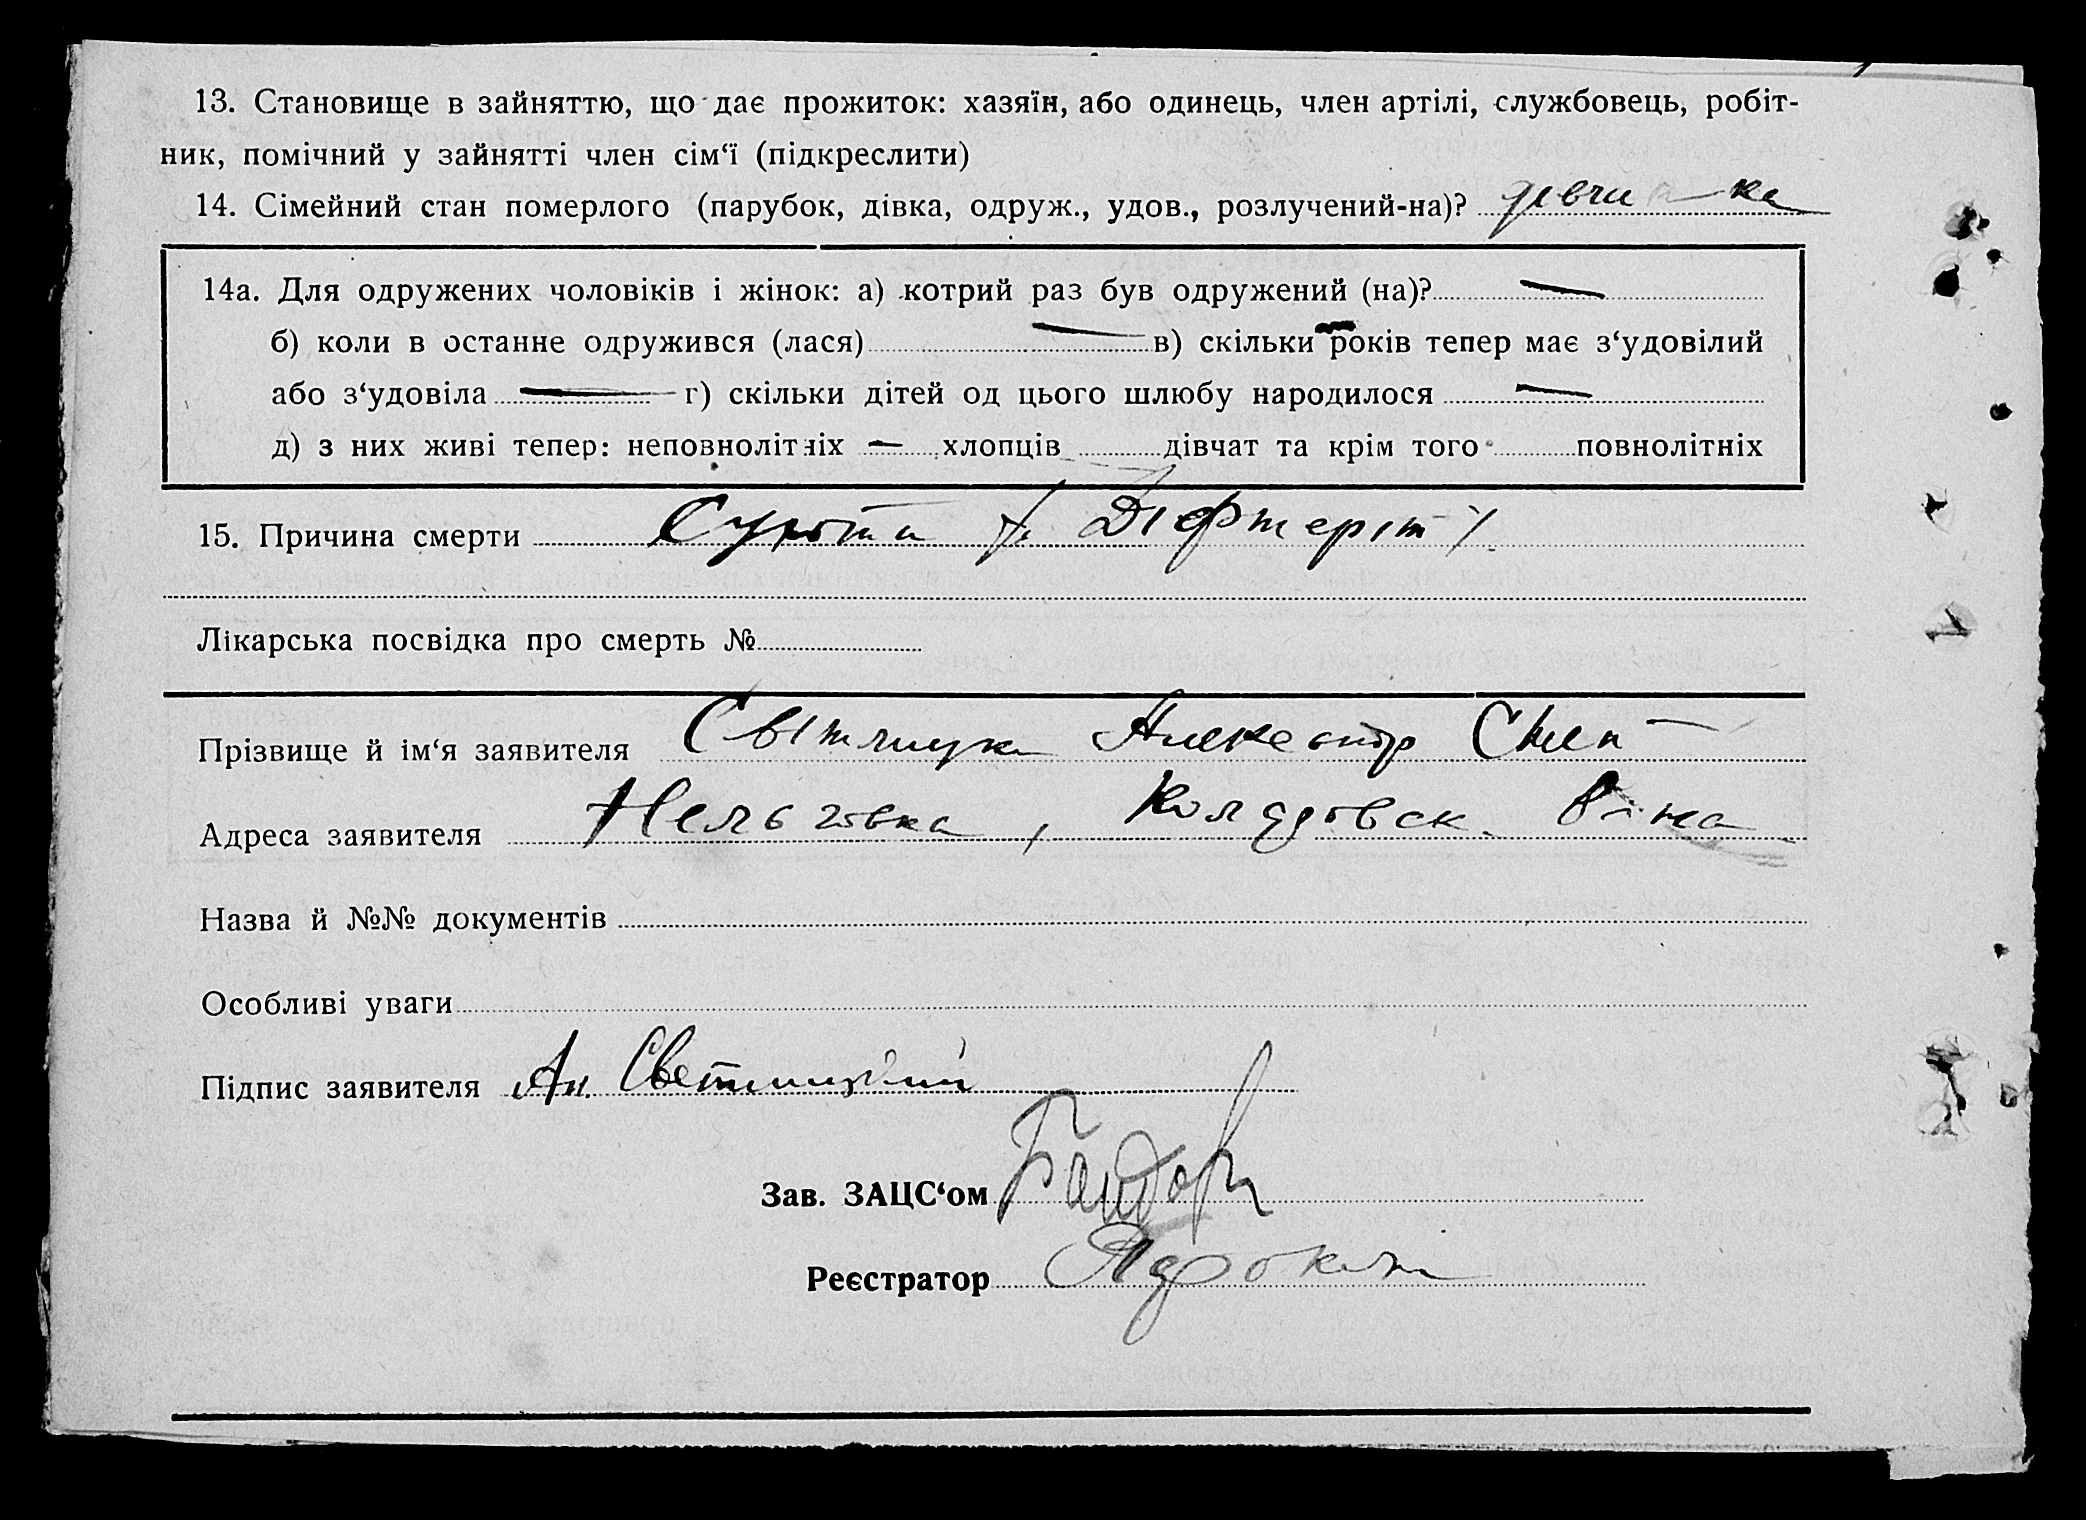 13. Становище в зайняттю, що дає прожиток: хазяїн, або одинець, член артілі, службовець, робіт-
ник, помічний у зайнятті член сім‘ї (підкреслити)
14. Сімейний стан померлого (парубок, дівка, одруж., удов., розлучений-на)?
14а. Для одружених чоловіків і жінок: а) котрий раз був одружений (на)? —
б) коли в останне одружився (лася) — в) скільки років тепер має з‘удовілий
або з‘удовіла — г) скільки дітей од цього шлюбу народилося —
д) з них живі тепер: неповнолітніх — хлопців дівчат та крім того повнолітніх
15. Причина смерти Діфтеріт
Лікарська посвідка про смерть №
Прізвище й ім‘я заявителя Александр
Адреса заявителя Нельговка,
Назва й №№ документів
Особливі уваги
Підпис заявителя Ал.
Зав. ЗАЦС‘ом
Реєстратор